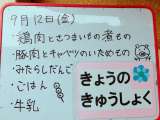 9月12日(金)
・鶏肉とさつまいもの煮もの
・豚肉とキャベツのいためもの
・みたらしだんご
・ごはん
・牛乳
きょうの
きゅうしょく